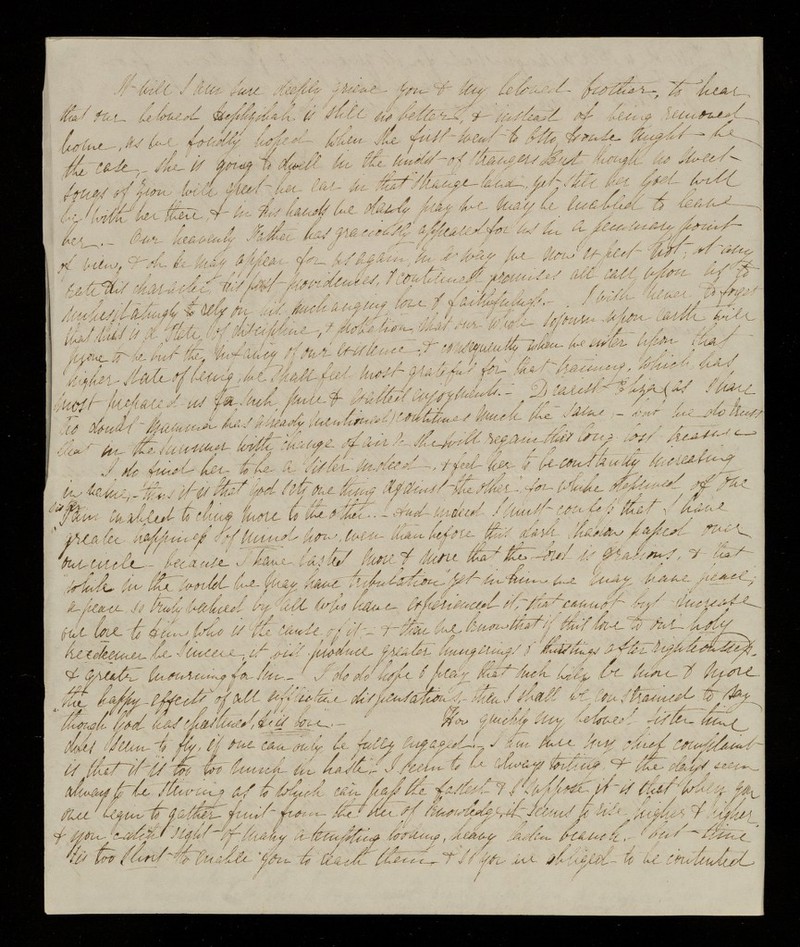 It will I am sure deeply grieve you & my beloved brother, to hear
that our beloved Hephzibah is still no better, & instead of being removed
home, as we fondly hoped when she first went to Otto House might be
the case, she is going to dwell in the midst of strangers & but though no sweet
songs of Zion will greet her ear in that strange land, yet, still her God will
be with her there, & in his hands we daily pray we may be enabled to leave
her. - Our heavenly Father has graciously appeared for us in a pecuniary point
of view, & oh he may appear for us again, in a way we now expect not; at any
rate his character, his past providences, & continued promises all call upon us
to rely on his unchanging love & faithfulness. I wish never to forget
that this is a state of discipline, & probation, that our whole sojourn upon earth will
prove to be but the infancy of our existence & consequently when we enter upon that
higher state of being, we shall feel most grateful for that training, which has
most prepared us for such pure & exalted enjoyments. - Dearest Eliza (as I have
no doubt Mamma has already mentioned) continues much the same, - but we do trust
that in the summer with change of air &c she will regain this long lost treasure
I do find her to be a sister indeed, & feel her to be constantly increasing
in value, - thus it is that God sets one thing against the other for while deprived of one
I am enabled to cling more to the other. - And indeed I must confess that I have
greater happiness of mind now, even than before this dark shadow passed over
our circle because I have tasted more & more that the Lord is gracious, & that
while in the world we may have tribulation yet in him we may have peace,
a peace so truly valued by all who have experienced it, that cannot but increase
our love to Him who is the cause of it, - & then we know that if this love to our holy
Redeemer be sincere, it will produce greater hungerings & thirstings after righteousness
& greater mourning for sin - I do do hope & pray that such will be more & more
the happy effects of all afflictive dispensations, - then I shall be constrained to say
though God has chastened, he is love. - How quickly my beloved sister time
does seem to fly, if one can only be fully engaged. - I am sure my chief complaint
is that it is too too much in haste. I seem to be always toiling & the days seem
always to be striving as to which can pass the fastest & I suppose it is that when you
once begin to gather fruit from the tree of knowledge, it seems to rise higher & higher
& you catch sight of many a tempting looking, heavy laden branch, but time
is too short to enable you to reach them & so you are obliged to be contented